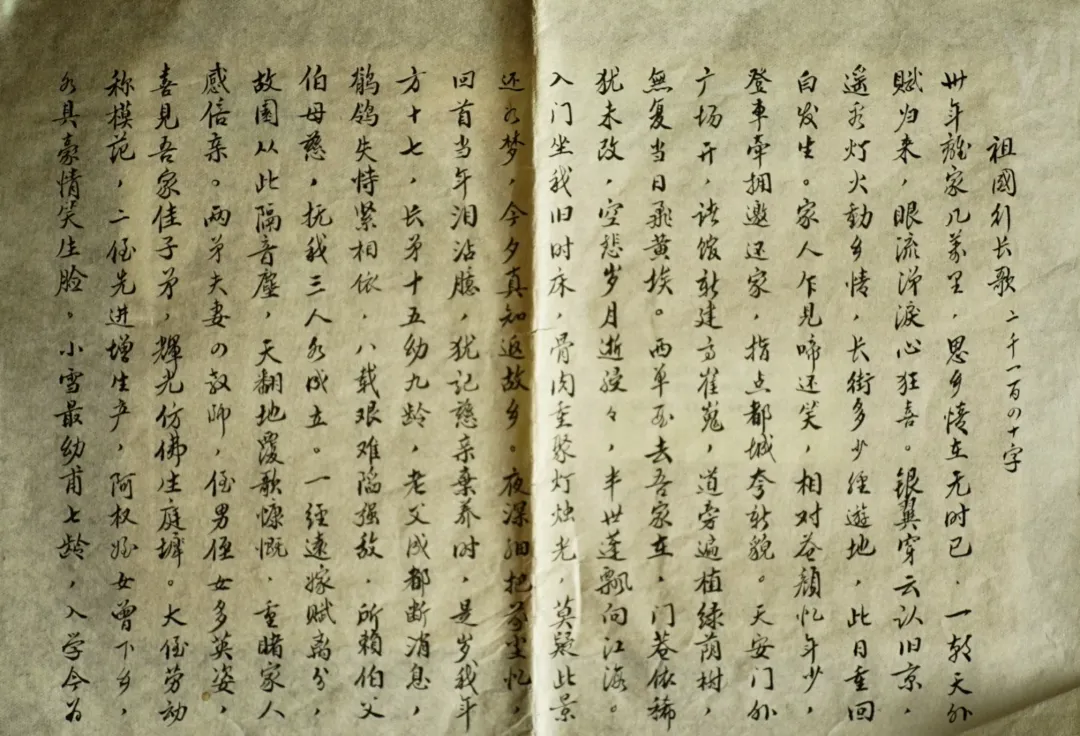 祖國行长歌 二千一百四十字
卅年離家几萬里，思乡情在无时已，一朝天外
赋归来，眼流涕淚心狂喜。银翼穿云认旧京，
遥看灯火動乡情，长街多少经遊地，此日重回
白发生。家人乍见啼还笑，相对苍颜忆年少，
登車牵拥邀还家，指点都城夸新貌。天安门外
广场开，诸馆新建高崔嵬，道旁遍植绿荫树，
無复当日飛黄埃。西单西去吾家在，门巷依稀
犹未改，空悲岁月逝骎々，半世蓬飘向江海。
入门坐我旧时床，骨肉重聚灯烛光，莫疑此景
还如梦，今夕真知返故乡。夜深细把前尘忆，
回首当年泪沾臆，犹记慈亲棄养时，是岁我年
方十七，长弟十五幼九龄，老父成都断消息，
鹡鸰失恃紧相依，八载艰难陷强敌，所赖伯父
伯母慈，抚我三人各成立。一经遠嫁赋离分，
故園从此隔音塵，天翻地覆歌慷慨，重睹家人
感倍亲。两弟夫妻四教师，侄男侄女多英姿，
喜見吾家佳子弟，輝光仿佛生庭墀。大侄劳动
称模范，二侄先进增生产，阿权侄女曾下乡，
各具豪情笑生脸。小雪最幼甫七龄，入学今为